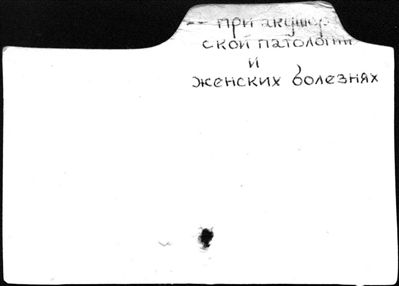 -- при акушер
ской патологии
и
женских болезнях